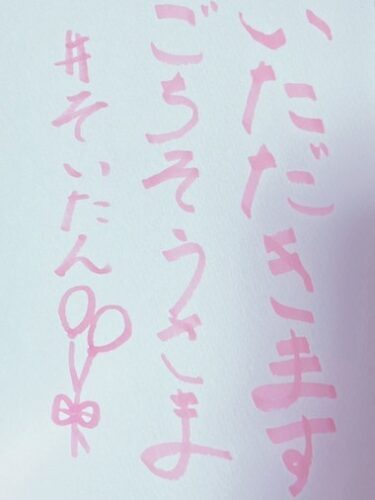 いただきます
ごちそうさま
#そいたん